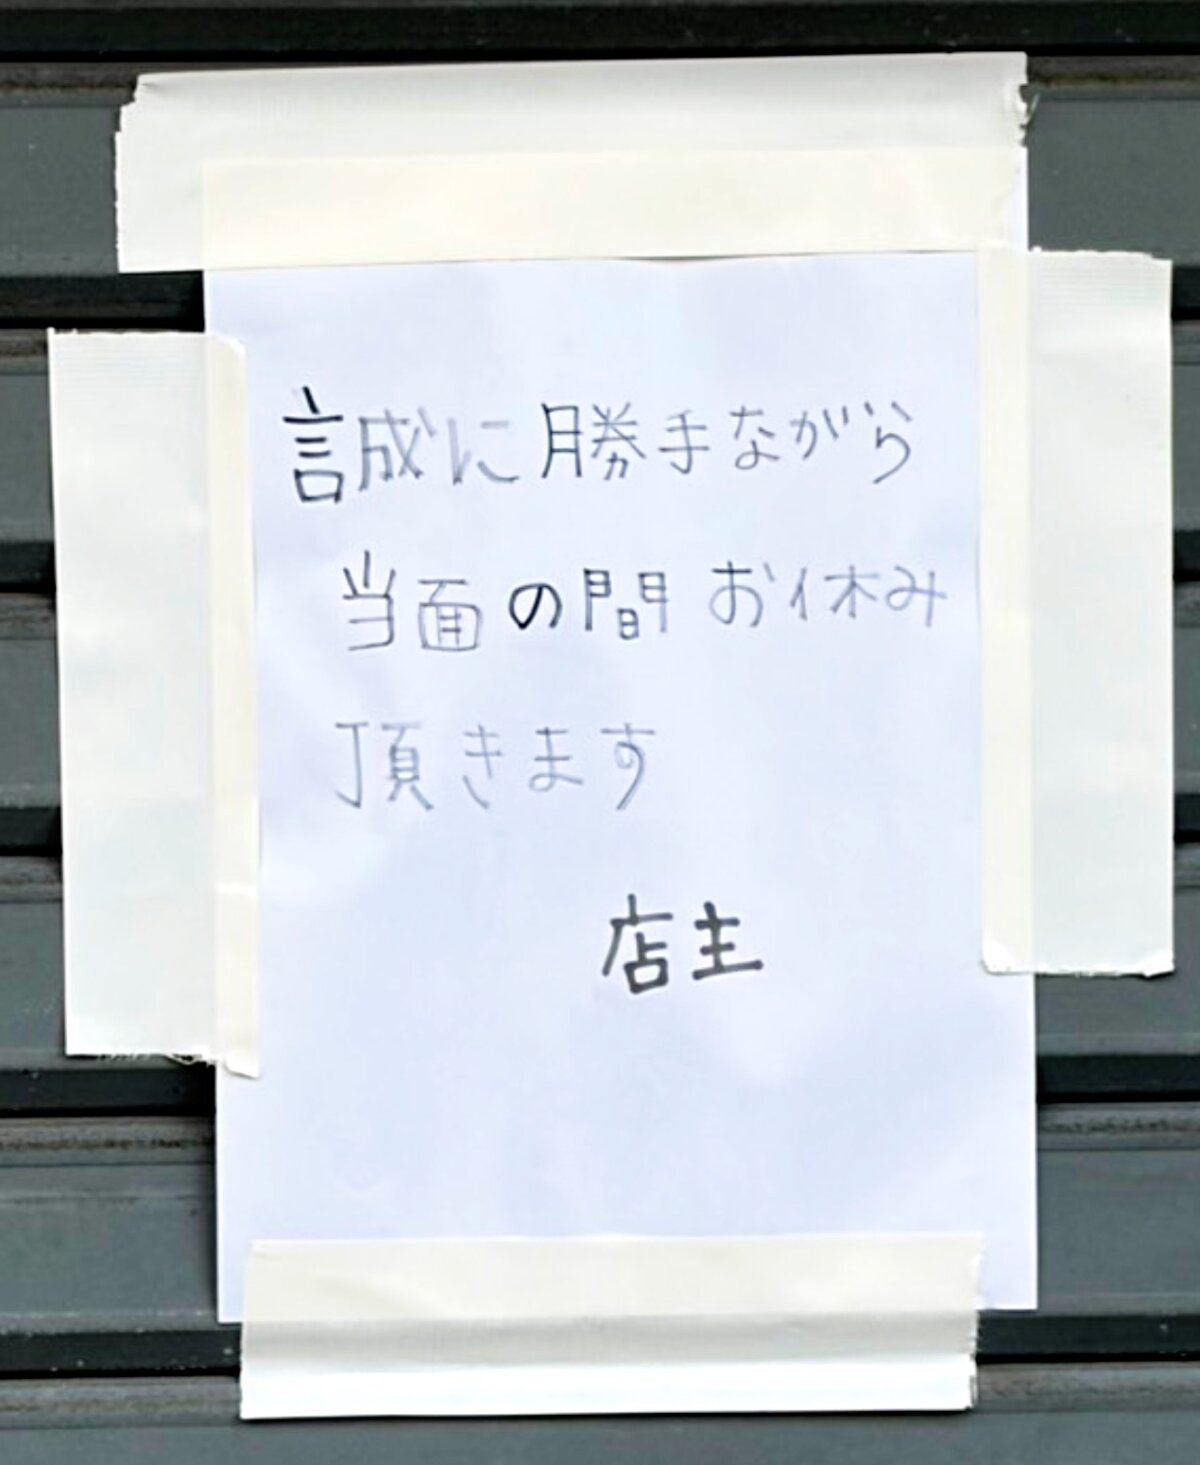 誠に勝手ながら
当面の間お休み
頂きます
店主